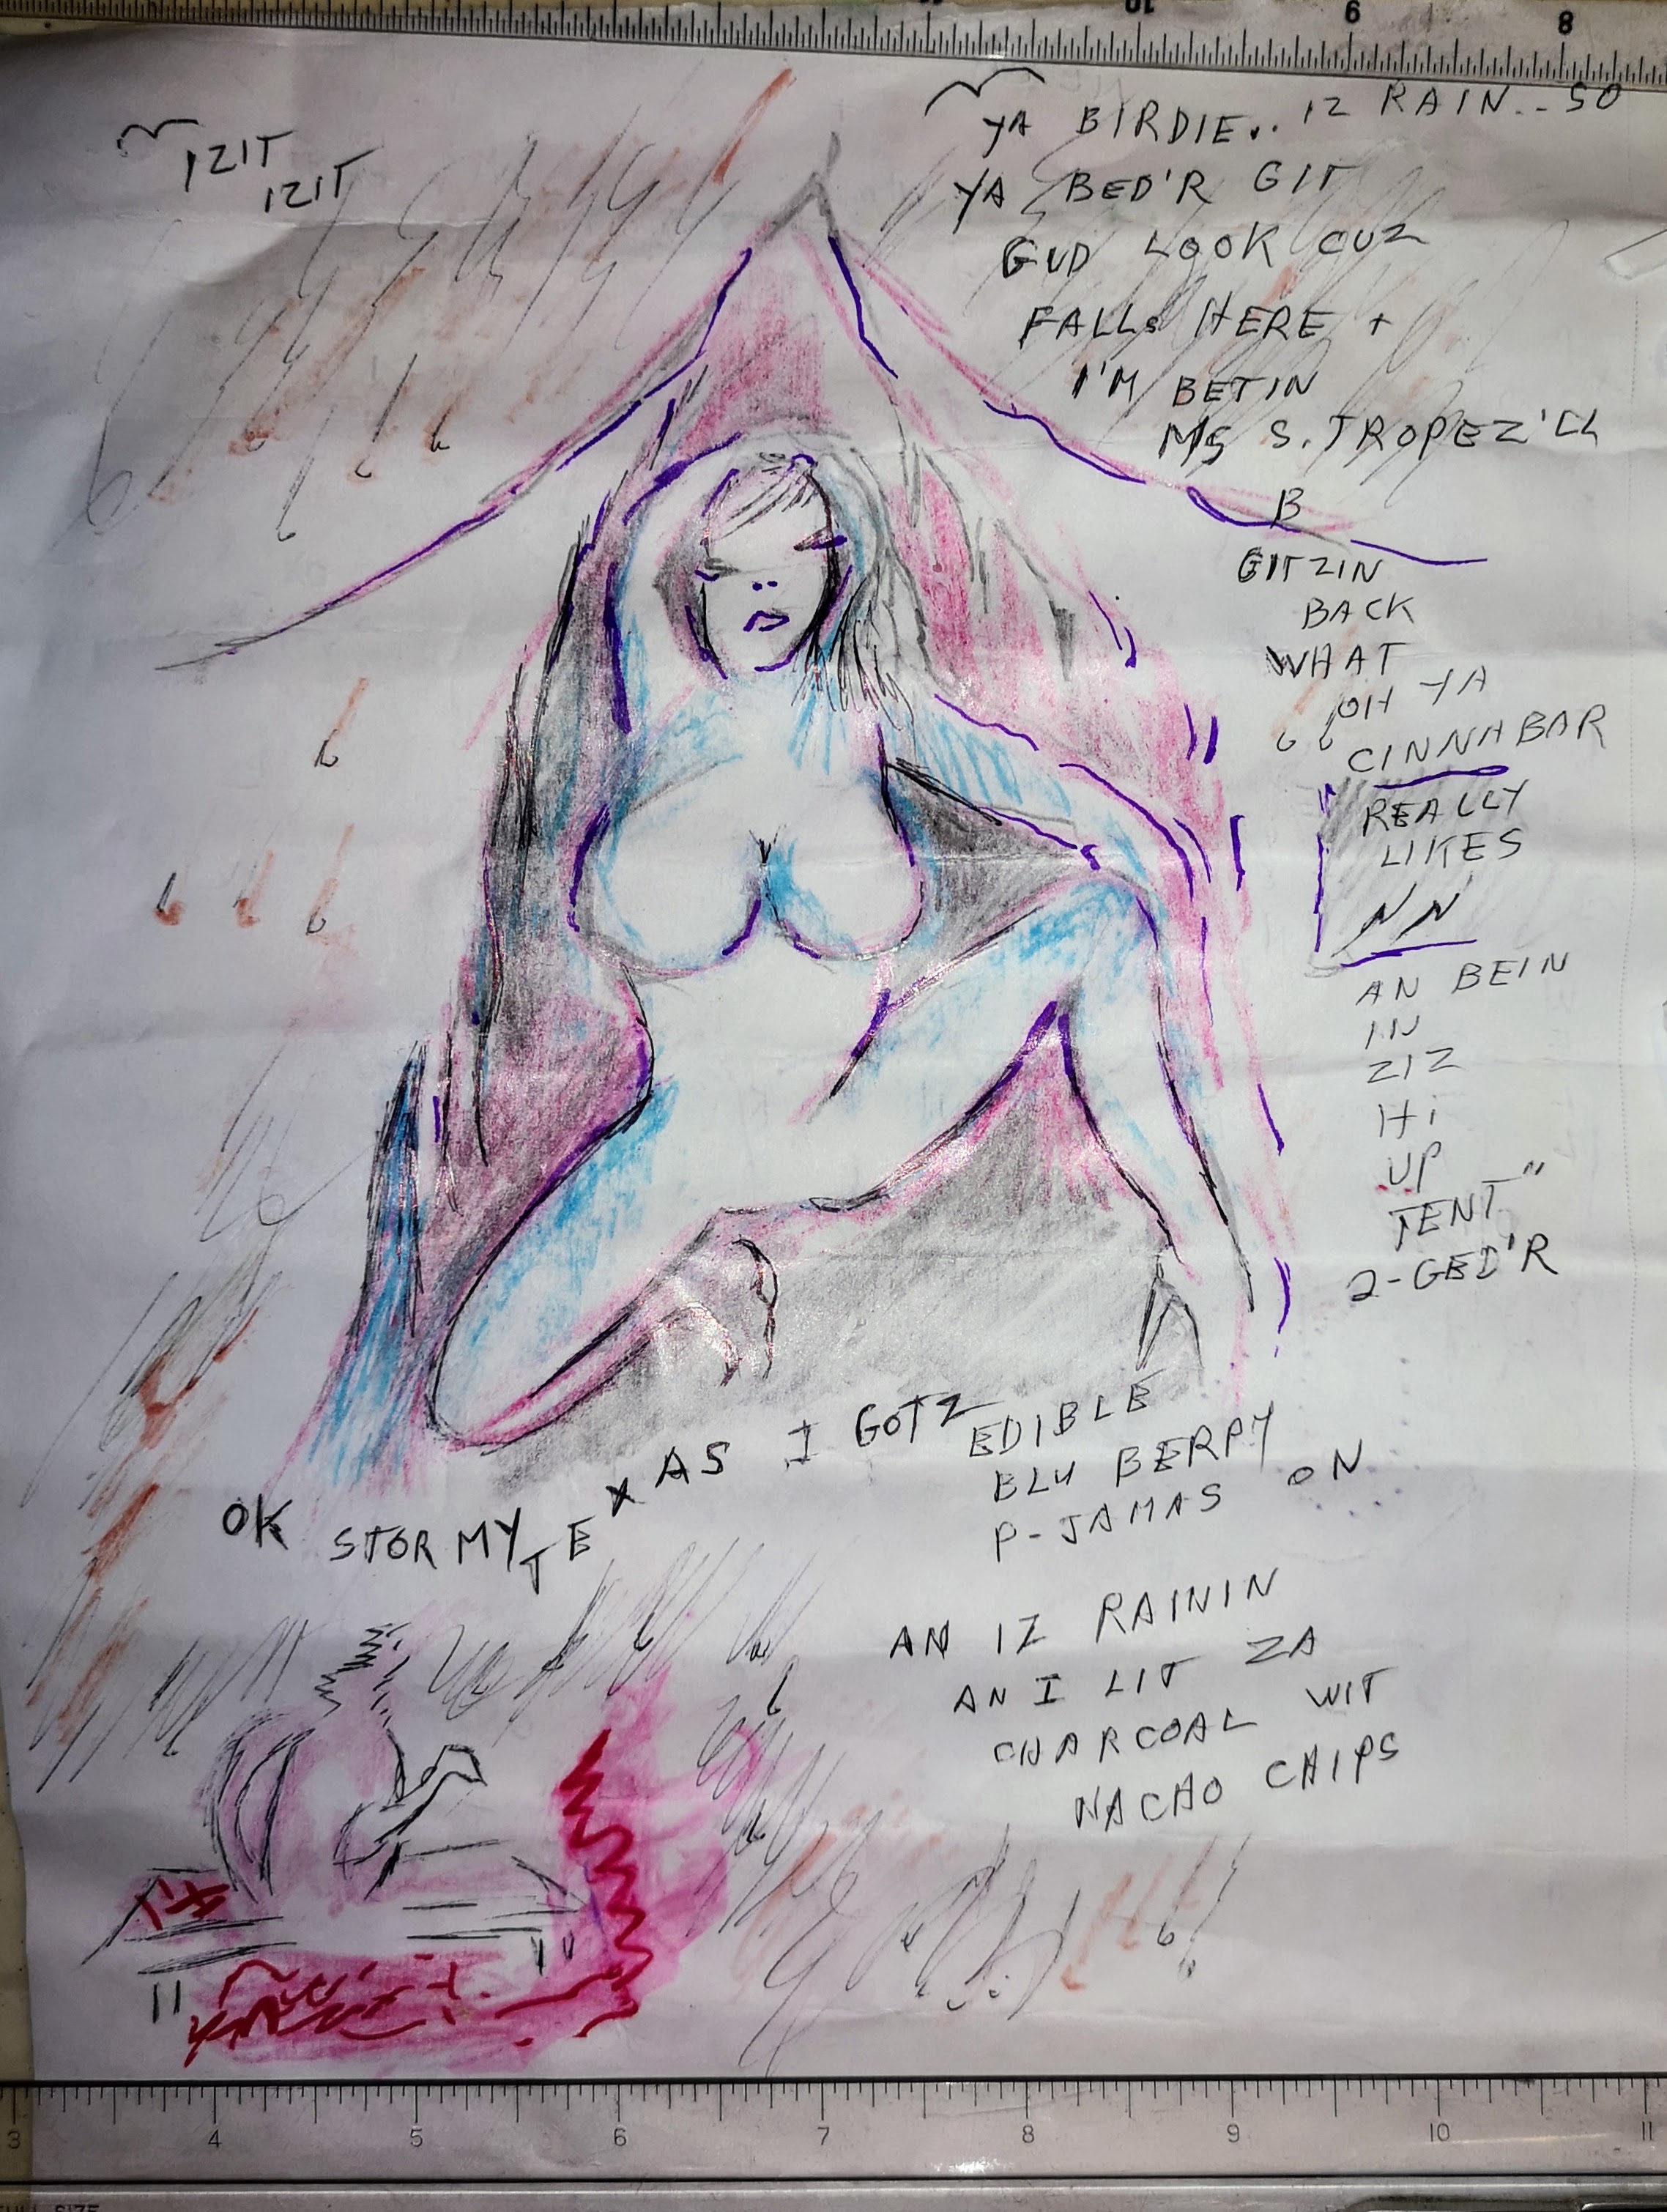 IZIT
IZIT
YA BIRDIE.. IZ RAIN.. SO
YA BED'R GIT
GUD LOOK CUZ
FALLS HERE +
I'M BETIN
MS S. TROPEZ'LL
B
GITZIN
BACK
WHAT
OH YA
CINNABAR
REALLY
LIKES
NN
AN BEIN
IN
ZIZ
Hi
UP
TENT"
2-GED'R
OK STORMY TEXAS I GOTZ
EDIBLE
BLU BERRY
P-JAMAS ON
AN IZ RAININ
AN I LIT ZA
CHARCOAL WIT
NACHO CHIPS
11 10 9 8
3 4 5 6 7 8 9 10 11